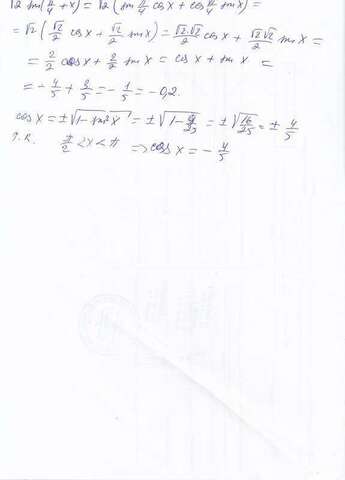 √2 sin(π/4 + x) = √2 (sin π/4 cos x + cos π/4 sin x) =
= √2 (√2/2 cos x + √2/2 sin x) = √2·√2/2 cos x + √2·√2/2 sin x =
= 2/2 cos x + 2/2 sin x = cos x + sin x =
= - 4/5 + 3/5 = - 1/5 = -0,2.
cos x = ±√1 - sin² x = ±√1 - 9/25 = ±√16/25 = ± 4/5
т.к. π/2 < x < π ⇒ cos x = - 4/5